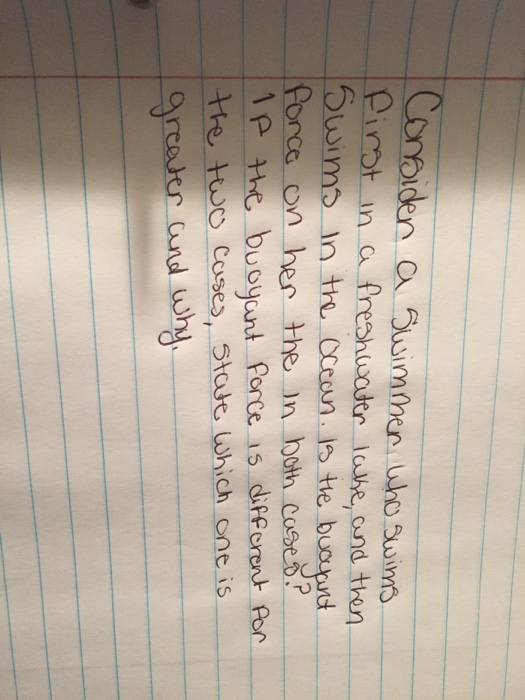 Consider a swimmer, who swims
first in a freshwater lake, and then
swims in the ocean. Is the buoyant
force on her the in both cases?
If the buoyant force is different for
the two cases, state which one is
greater and why.